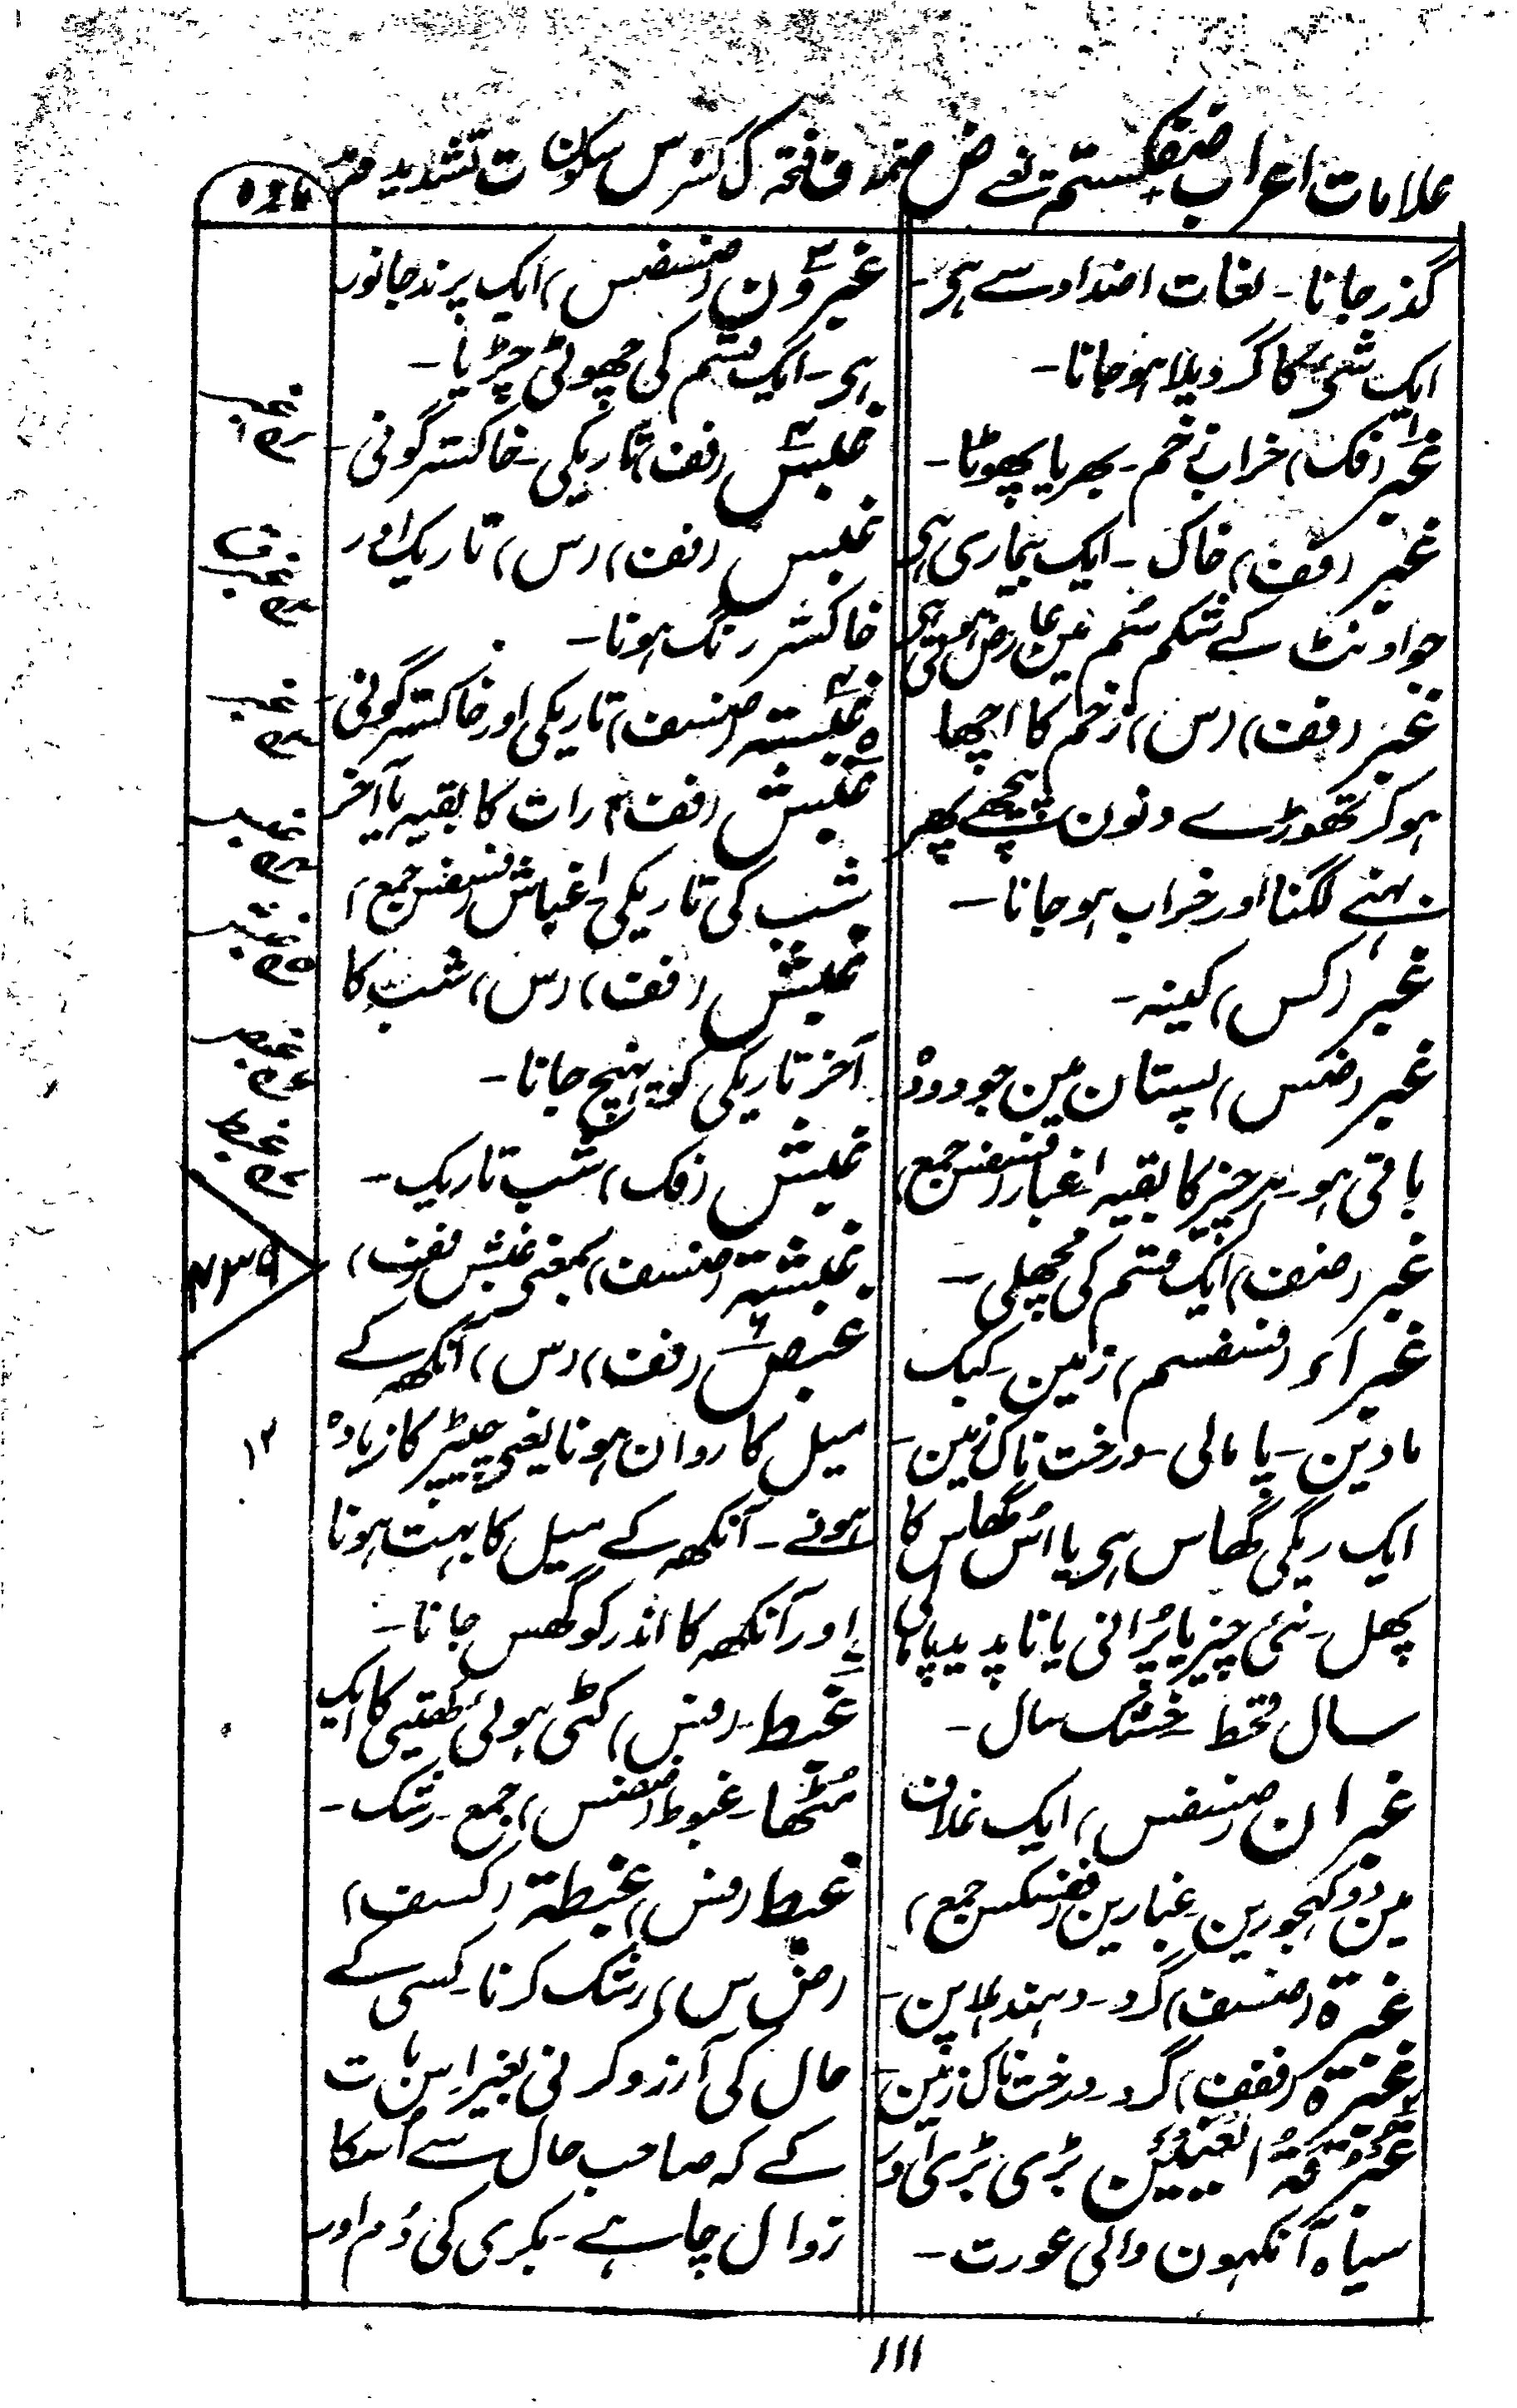 علامات اعراب ضفکستم نے ض ضمہ ف فتحہ ک کسر س سکون ت تشدید م مد
گذر جانا۔ لغات اضداد سے ہی۔
ایک شی کا گرد یلا ہو جانا۔
غبر (فک) خراب زخم۔ بھر یا پھوٹا۔
غبر (فف) خاک۔ ایک بیماری ہی
جو اونٹ کے شکم سُم مین عارض ہوتی ہی
غبر (فف) (س) زخم کا اچھا
ہو کر تھوڑے دنون پیچھے پھر
بہنے لگنا اور خراب ہو جانا۔
غبر (کس) کینہ۔
غبر (ضس) پستان مین جو دودہ
باقی ہو۔ ہر چیز کا بقیہ اغبار (فسفس جمع)
غبر (ضف) ایک قسم کی مچھلی۔
غبراء (فسفسم) زمین۔ کبک
مادین۔ پامالی۔ درخت ناک زمین۔
ایک ریگی گھاس ہی یا اُس گھاس کا
پھل۔ نئی چیز یا پُرانی یا ناپدید پامالی
سال قحط خشک سال۔
غبران (ضسفس) ایک غلاف
مین دو کھجورین۔ غبارین (ففسکس جمع)
غبرة (ضسف) گرد۔ دہندلا پن۔
غبرة (ففف) گرد۔ درخت ناک زمین۔
غبرقة العینین بڑی بڑی اور
سیاہ آنکہون والی عورت۔
غبرون (ضسضس) ایک پرند جانور
ہی۔ ایک قسم کی چھوٹی چڑیا۔
غبس (فف) تاریکی۔ خاکستر گونی۔
غبس (فف) (س) تاریک اور
خاکستر رنگ ہونا۔
غبسة (ضسف) تاریکی اور خاکستر گونی۔
غبش (فف) رات کا بقیہ یا آخر
شب کی تاریکی۔ اغباش (فسفس جمع)
غبش (فف) (س) شب کا
آخر تاریکی کو پہنچ جانا۔
غبش (فک) شب تاریک۔
غبشة (ضسف) بمعنی غبش (فف)
غبص (فف) (س) آنکھہ کے
میل کا روان ہونا یعنی چیپڑ کا زیادہ
ہونے۔ آنکھہ کے میل کا بہت ہونا
اور آنکھہ کا اندر کو گھس جانا۔
غبط (فس) کٹی ہوئی کھیتی کا ایک
مُٹھا۔ غبوط (ضضس) جمع۔ رشک۔
غبط (فس) غبطة (کسف)
(ض س) رشک کرنا۔ کسی کے
حال کی آرزو کرنی بغیر اس بات
کے کہ صاحب حال سے اُسکا
زوال چاہے۔ بکری کی دُم اور
غبر
غبس
غبش
غبص
غبط
۱۲
۱۱۱